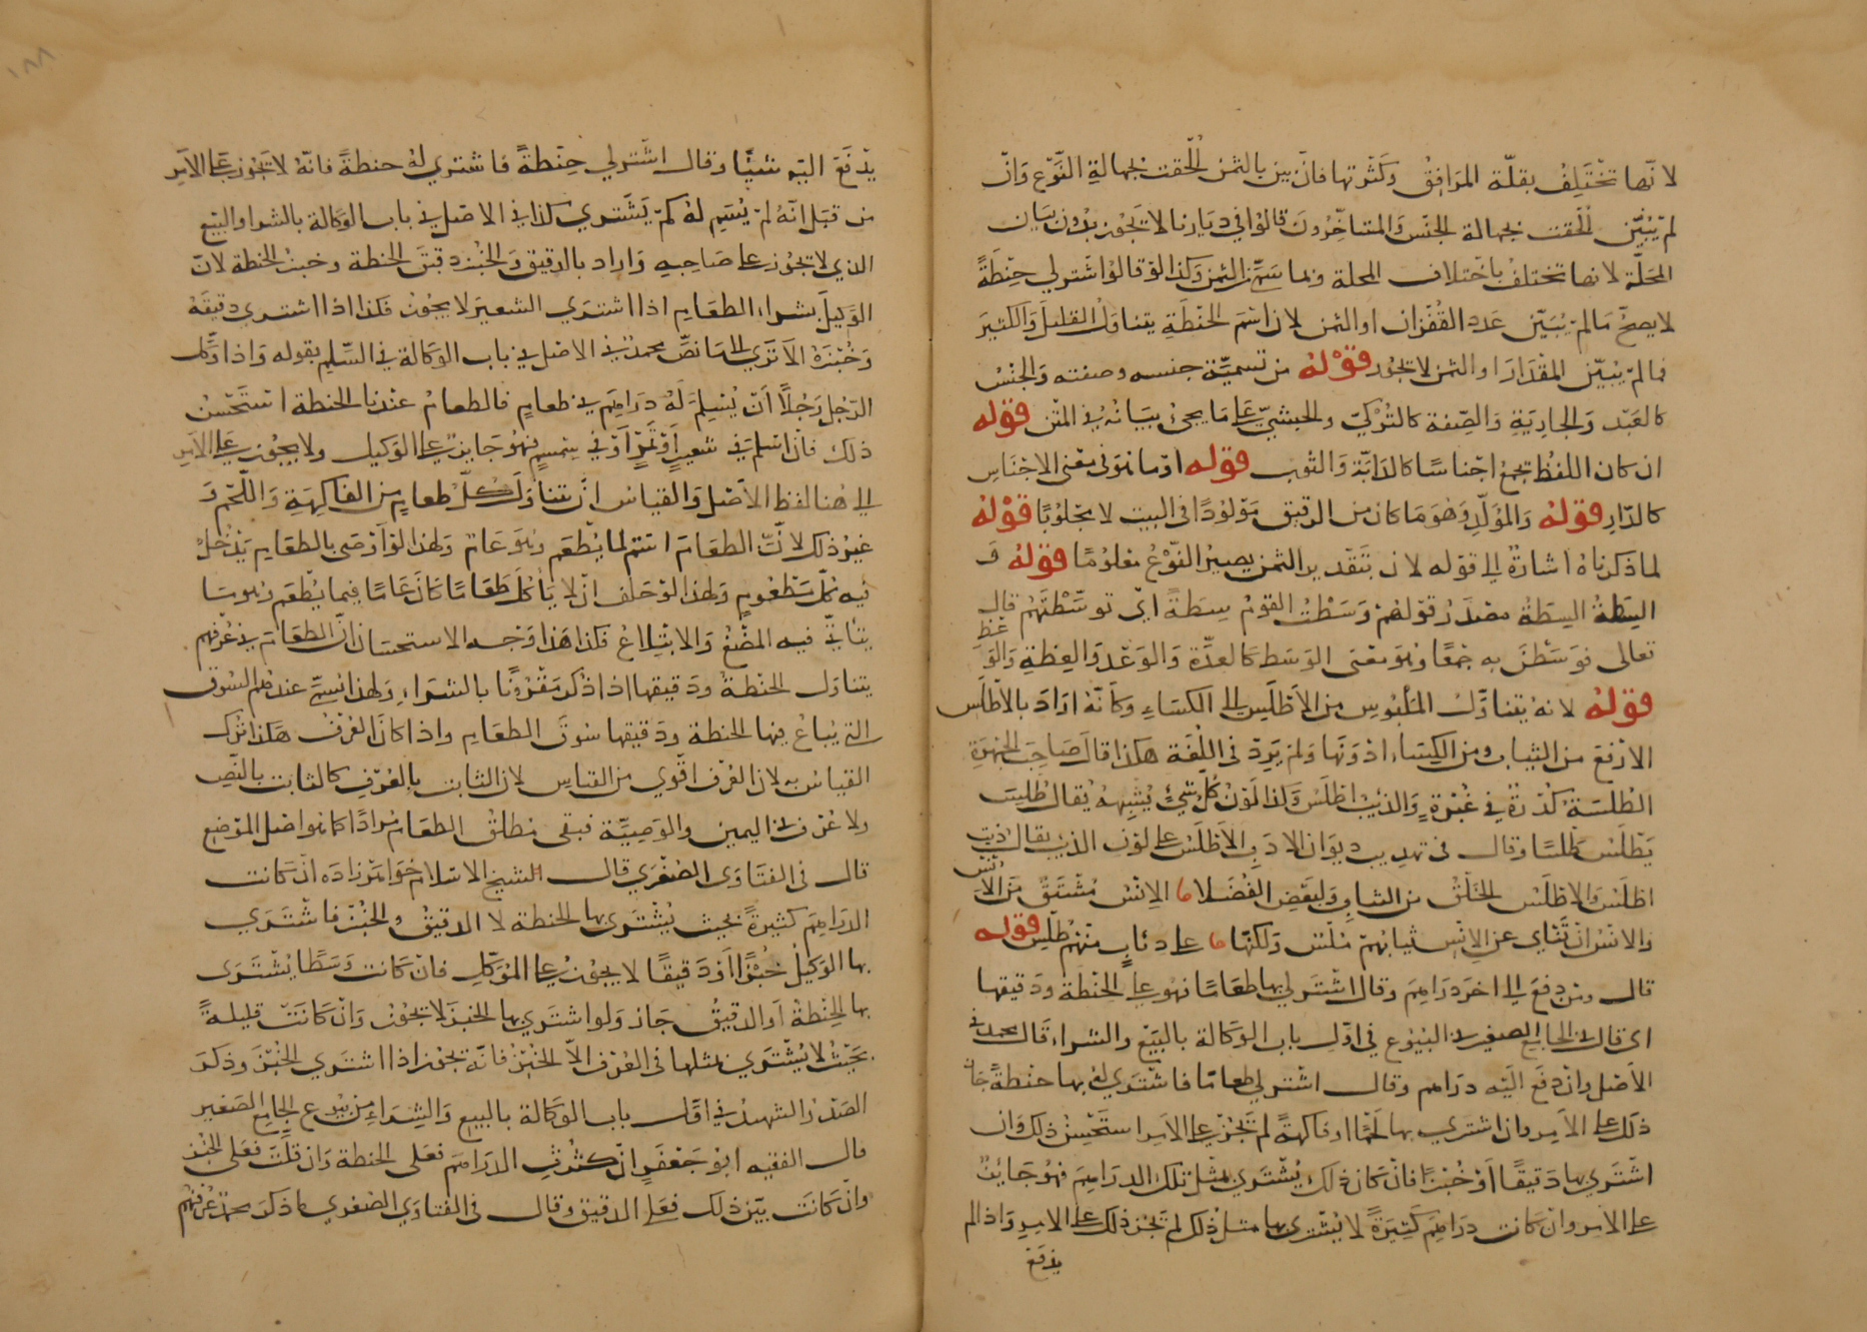 لانها تختلف بقلة المرافق وكثرتها فان بين بالثمن الحقت بجهالة النوع وان
لم يبين الحقت بجهالة الجنس والمتأخرون قالوا في ديارنا لا تجوز بدون بيان
المحلة لانها تختلف باختلاف المحلة وبما سمى الثمن وكذا لو قالوا اشتر لي حنطة
لا يصح ما لم يبين عدد القفزان او الثمن لان اسم الحنطة يتناول القليل والكثير
فما لم يبين المقدار او الثمن لا تجوز قوله من تسمية جنسه وصفته والجنس
كالعبد والجارية والصفة كالتركي والحبشي على ما يجئ بيانه في المتن قوله
ان كان اللفظ يجمع اجناسا كالدابة والثوب قوله او ما هو في معنى الاجناس
كالدار قوله والمولد وهو ما كان من الرقيق مولودا في البيت لا مجلوبا قوله
لما ذكرناه اشارة الى قوله لان بتقدير الثمن يصير النوع معلوما قوله و
السطة السطة مصدر قولهم وسطت القوم سطة اي توسطتهم قال
تعالى فوسطن به جمعا وهو معنى الوسط كالعدة والوعد والعظة والو
عظ
قوله لانه يتناول الملبوس من الاطلس الى الكساء وكانه اراد بالاطلس
الارفع من الثياب ومن الكساء ادونها ولم يرد في اللغة هكذا قال صاحب الجمهرة
الطلسة كدرة في غبرة والذئب اطلس وكذا لون كل شئ يشبهه يقال طلس
يطلس طلسا وقال في تهذيب ديوان الادب الاطلس على لون الذئب يقال ذئب
اطلس والاطلس الخلق من الثياب ولبعض الفضلا ما الانس مشتق من الا
نس
والانس ان تنأى عن الانس ثيابهم ملس ولكنها ما على ذئاب منهم طلس قوله
قال ومن دفع الى اخر دراهم وقال اشتر لي بها طعاما فهو على الحنطة ودقيقها
اى قال في الجامع الصغير في البيوع في اول باب الوكالة بالبيع والشراء قال محمد في
الاصل وان دفع اليه دراهم وقال اشتر لي طعاما فاشترى له بها حنطة جاز
ذلك على الآمر وان اشترى بها لحما او فاكهة لم تجز على الآمر استحسن ذلك وان
اشترى بها دقيقا او خبزا فان كان ذلك يشترى بمثل تلك الدراهم فهو جايز
على الآمر وان كانت دراهم كثيرة لا يشترى بها مثل ذلك لم تجز ذلك على الآمر واذا لم
يدفع
١٨٨
يدفع اليه شيئا وقال اشتر لي حنطة فاشترى له حنطة فانه لا تجوز على الآمر
من قبل انه لم يسم له كم يشترى كذا في الاصل في باب الوكالة بالشرا والبيع
الذي لا تجوز على صاحبه واراد بالدقيق والخبز دقيق الحنطة وخبز الحنطة لان
الوكيل بشراء الطعام اذا اشترى الشعير لا يجوز فكذا اذا اشترى دقيقه
وخبزه الا ترى الى ما نص محمد في الاصل في باب الوكالة في السلم بقوله واذا وكل
الرجل رجلا ان يسلم له دراهم في طعام فالطعام عندنا الحنطة استحسن
ذلك فان اسلم في شعير او تمر او في سمسم فهو جايز على الوكيل ولا يجوز على الآمر
الى هنا لفظ الاصل والقياس ان يتناول كل طعام من الفاكهة واللحم و
غير ذلك لان الطعام اسم لما يطعم وهو عام ولهذا لو اوصى بالطعام يدخل
فيه كل مطعوم ولهذا لو حلف ان لا يأكل طعاما كان عاما فيما يطعم وهو ما
يتأتى فيه المضغ والابتلاع فكذا هذا وجه الاستحسان ان الطعام في عرفهم
يتناول الحنطة ودقيقها اذا ذكر مقرونا بالشراء ولهذا يسمى عندهم السوق
التي يباع فيها الحنطة ودقيقها سوق الطعام واذا كان العرف هكذا ترك
القياس به لان العرف اقوى من القياس لان الثابت بالعرف كالثابت بالنص
ولا عرف في اليمين والوصية فبقى مطلق الطعام مرادا كما هو اصل الموضع
قال في الفتاوى الصغرى قال الشيخ الاسلام خواهر زاده ان كانت
الدراهم كثيرة بحيث يشترى بها الحنطة لا الدقيق والخبز فاشترى
بها الوكيل خبزا او دقيقا لا يجوز على الموكل فان كانت وسطا يشترى
بها الحنطة او الدقيق جاز ولو اشترى بها الخبز لا تجوز وان كانت قليلة
بحيث لا يشترى بمثلها في العرف الا الخبز فانه تجوز اذا اشترى الخبز وذكر
الصدر الشهيد في اول باب الوكالة بالبيع والشراء من بيوع الجامع الصغير
قال الفقيه ابو جعفر ان كثرت الدراهم فعلى الحنطة وان قلت فعلى الخبز
وان كانت بين ذلك فعلى الدقيق وقال في الفتاوى الصغرى ما ذكر محمد عرفهم